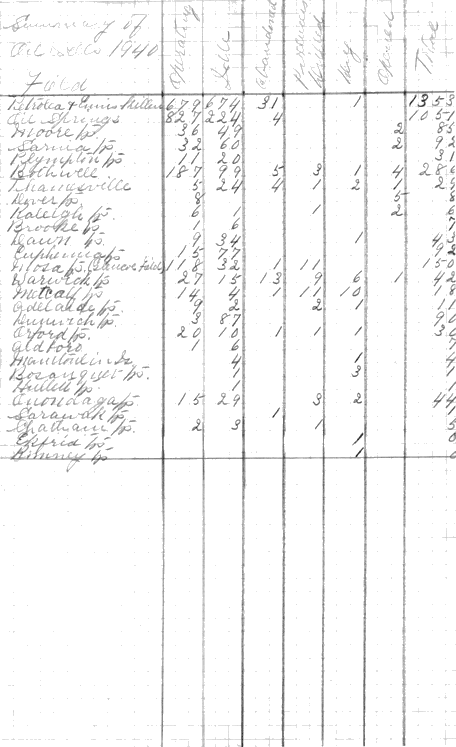 Summary of
Oil Wells 1940
Field Operating Idle Abandoned Produced Drilled Dry Total
Petrolea & Enniskillen 679 674 31 1 1353
Oil Springs 827 224 4 1051
Moore Tp. 36 49 2 85
Sarnia Tp. 32 60 2 92
Plympton Tp. 11 20 31
Bothwell 187 99 5 3 1 4 286
Thamesville 5 24 4 1 2 1 2
Dover Tp. 8 5 8
Raleigh Tp. 6 1 1 2
Brooke Tp. 1 6 7
Dawn Tp. 9 34 1 43
Euphemia Tp. 15 77
Mosa Tp. 118 32 11 150
Warwick Tp. 27 15 13 9 6 1 42
Metcalf Tp. 14 4 1 11 10 18
Adelaide Tp. 9 2 2 1 11
Dunwich Tp. 3 87 90
Orford Tp. 20 10 1 1 1 30
Aldboro 1 6 7
Manitoulin Is. 4 1 4
Bosanquet Tp. 1 3 1
Hullett Tp. 1 1
Onondaga Tp. 15 29 3 2 44
Sarawak Tp. 1
Chatham Tp. 2 3 1 5
Ekfrid Tp. 1 0
Romney Tp. 1 0